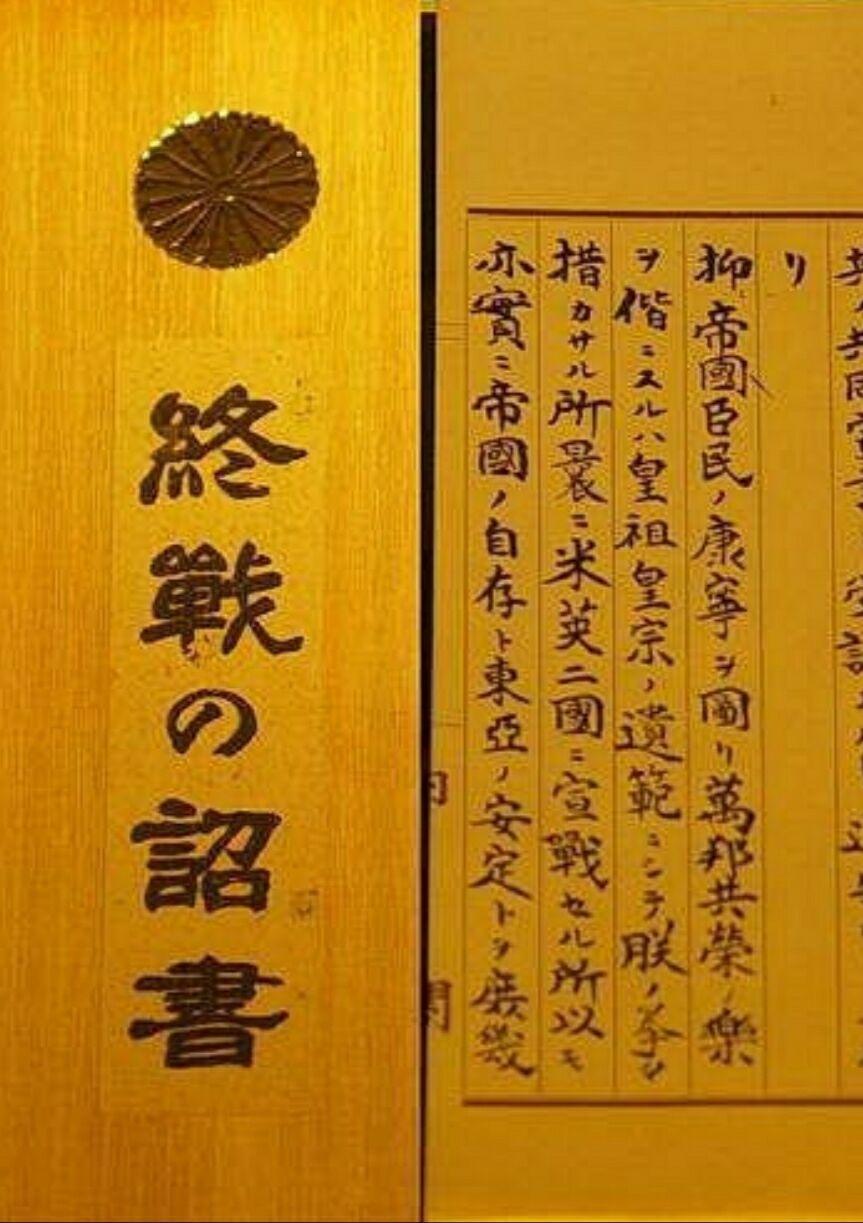 終戰の詔書
リ
抑帝國臣民ノ康寧ヲ圖リ萬邦共榮ノ樂
ヲ偕ニスルハ皇祖皇宗ノ遺範ニシテ朕ノ拳々
措カサル所曩ニ米英二國ニ宣戰セル所以モ
亦實ニ帝國ノ自存ト東亞ノ安定トヲ庶幾